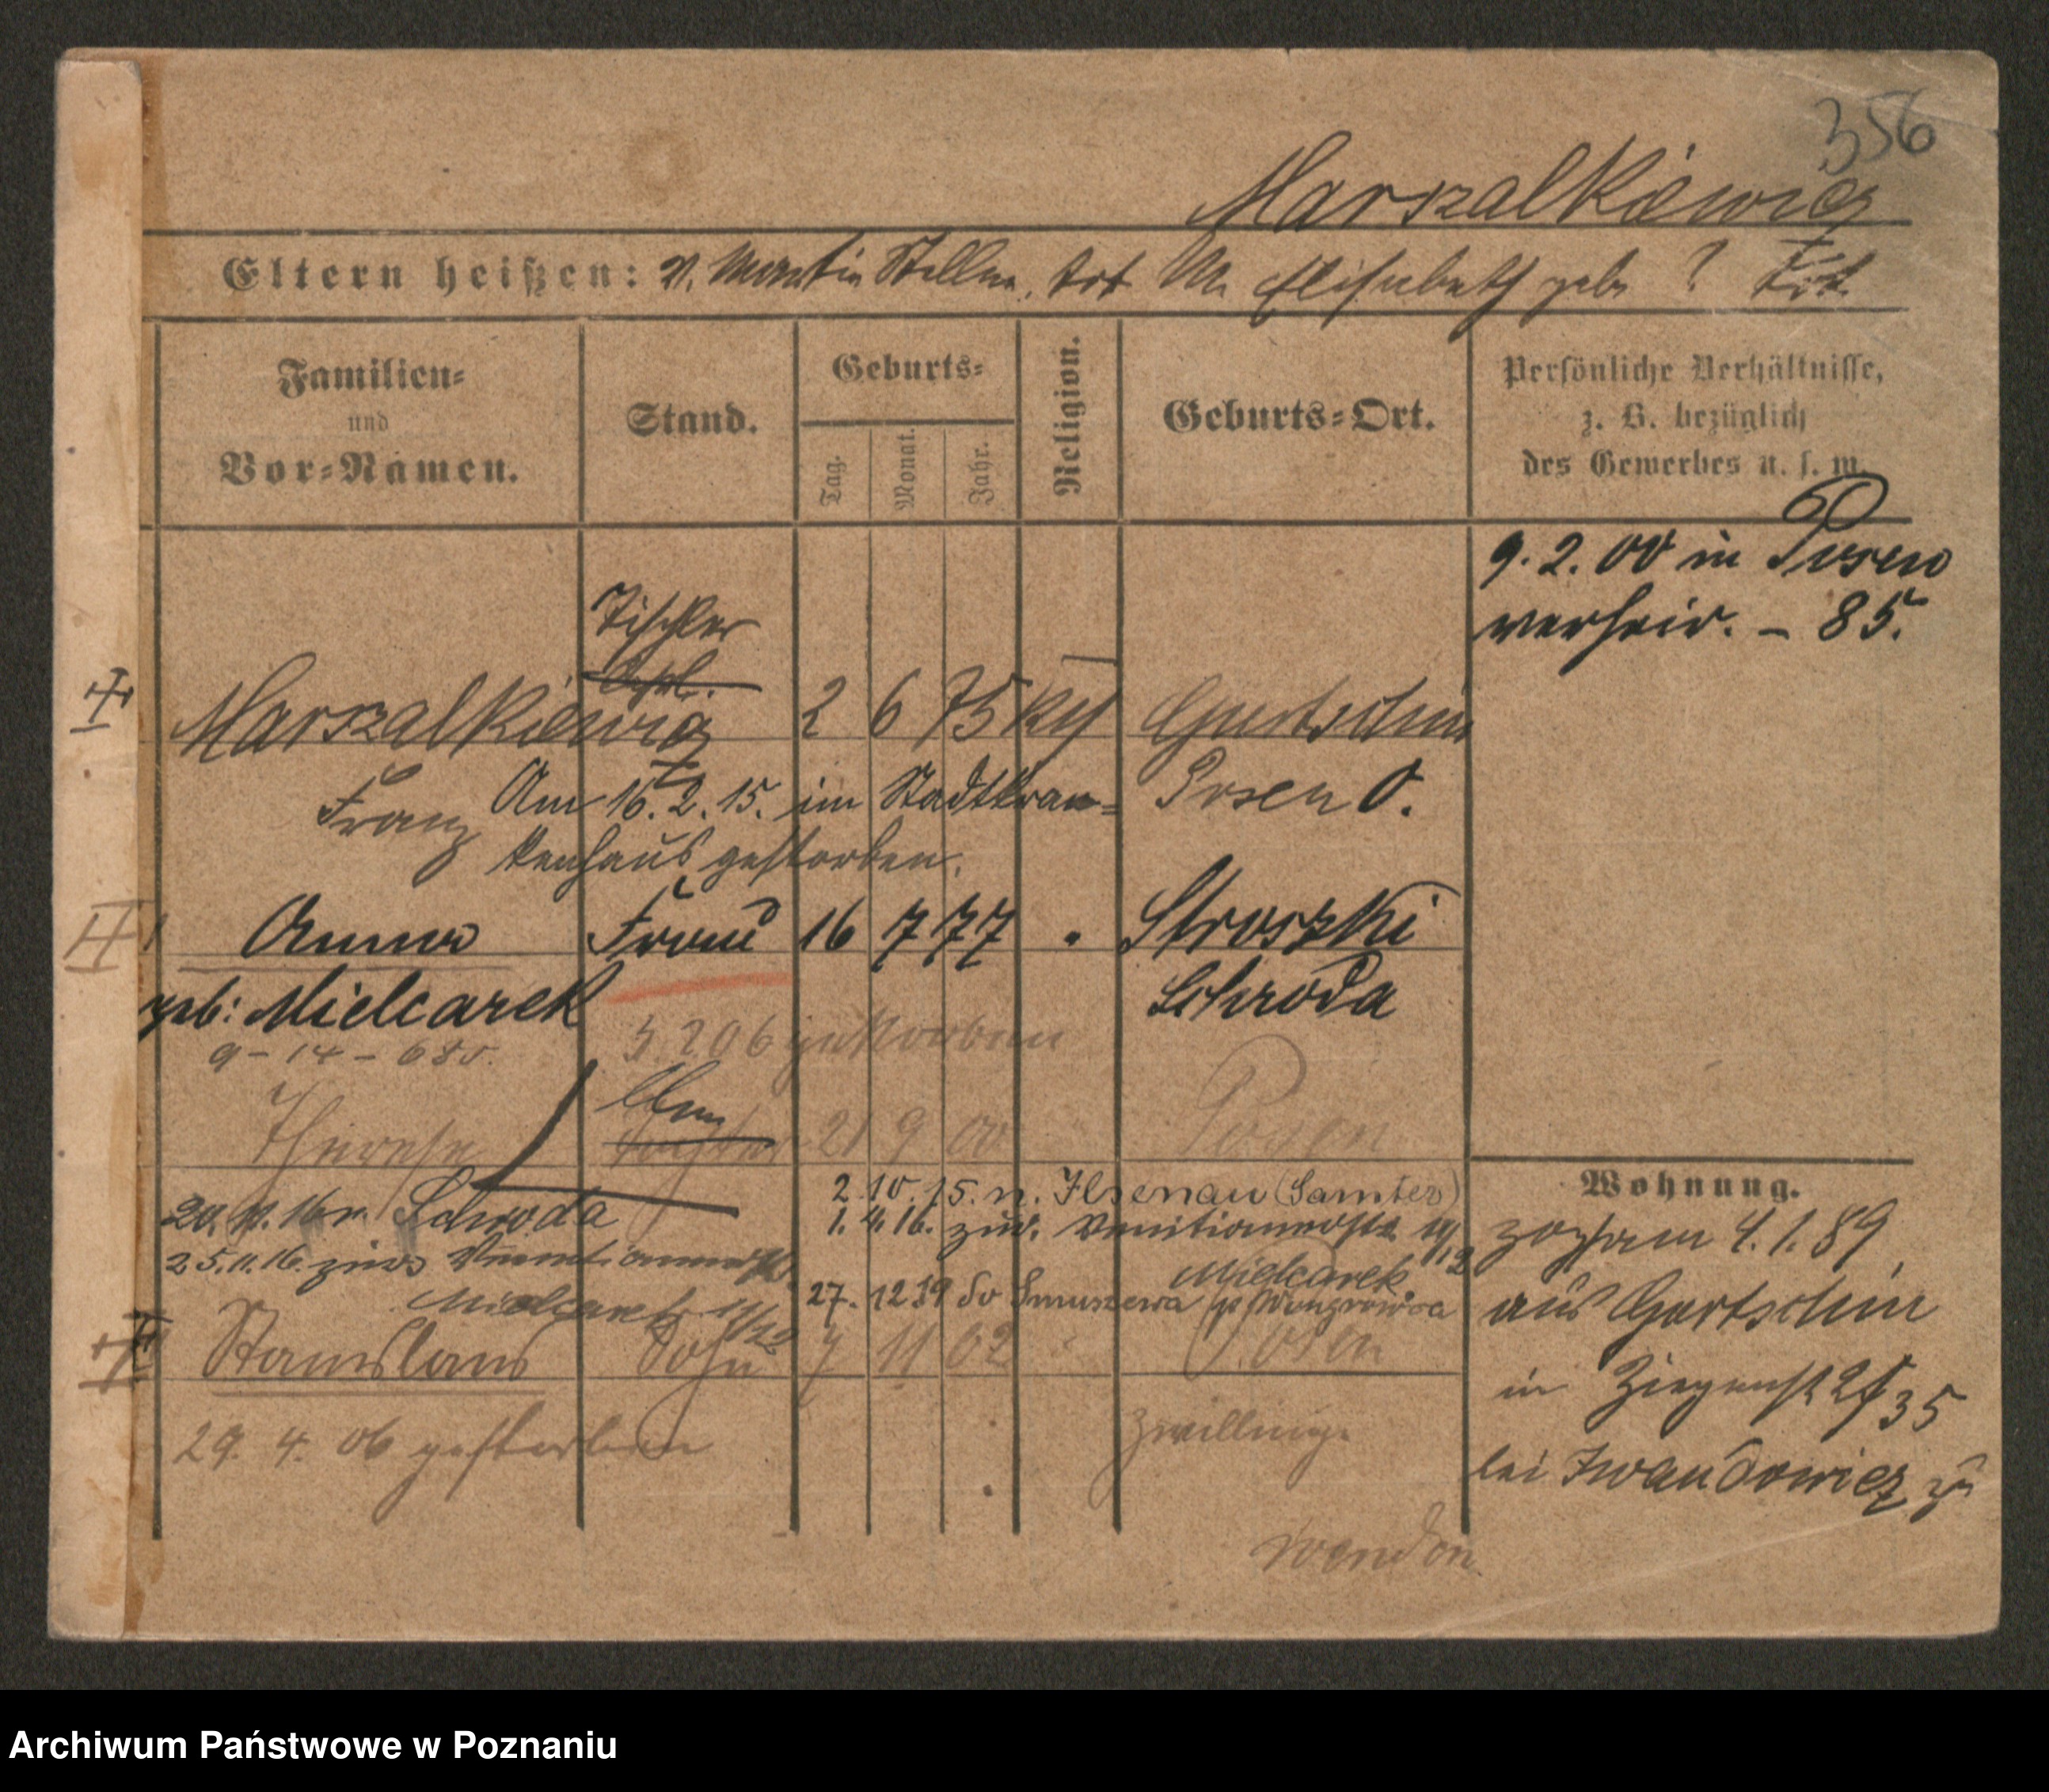 356
Marszalkiewicz
Eltern heißen: V. Martin Stellm. tot M. Elisabeth geb. ? tot.
Familien-
und
Vor-Namen.
Stand.
Geburts-
Tag.
Monat.
Jahr.
Religion.
Geburts-Ort.
Persönliche Verhältnisse,
z. B. bezüglich
des Gewerbes u. s. w.
9. 2. 00 in Posen
verheir. - 85.
Tischler
Marszalkiewicz 2 6 75 kth Gurtschin
Franz Posen O.
Am 16. 2. 15. im Stadtkran-
kenhaus gestorben.
Anna Frau 16 7 77 " Stroszki
geb: Mielcarek Schroda
9 - 14 - 685.
5. 2. 06 gestorben
Therese Tochter 21 9 00 Posen
2. 10. 15. n. Ilsenau (Samter)
20. 11. 16 n. Schroda
1. 4. 16. zur.
25. 11. 16. zur.
Mielcarek
Mielcarek 11/12
27. 12 19
Stanislaus Sohn 7 11 02 " Posen
29. 4. 06 gestorben
Zwillinge
wenden
Wohnung.
zog am 4. 1. 89
aus Gurtschin
in Ziegenst 24/35
bei Iwandowicz zu
Archiwum Państwowe w Poznaniu